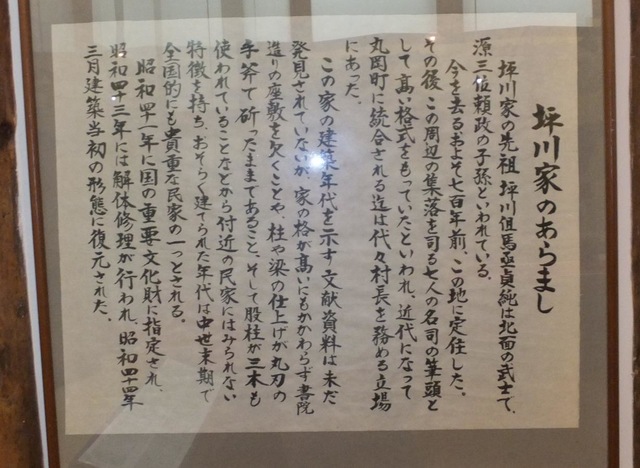 坪川家のあらまし
坪川家の先祖 坪川但馬丞貞純は北面の武士で、
源三位頼政の子孫といわれている。
今を去るおよそ七百年前、この地に定住した。
その後、この周辺の集落を司る七人の名司の筆頭と
して高い格式をもっていたといわれ、近代になって
丸岡町に統合される迄は代々村長を務める立場
にあった。
この家の建築年代を示す文献資料は未だ
発見されていないが、家の格が高いにもかかわらず書院
造りの座敷を欠くことや、柱や梁の仕上げが丸刃の
手斧で斫ったままであること、そして股柱が三本も
使われていることなどから付近の民家にはみられない
特徴を持ち、おそらく建てられた年代は中世末期で
全国的にも貴重な民家の一つとされる。
昭和四十一年に国の重要文化財に指定され、
昭和四十三年には解体修理が行われ、昭和四十四年
三月建築当初の形態に復元された。